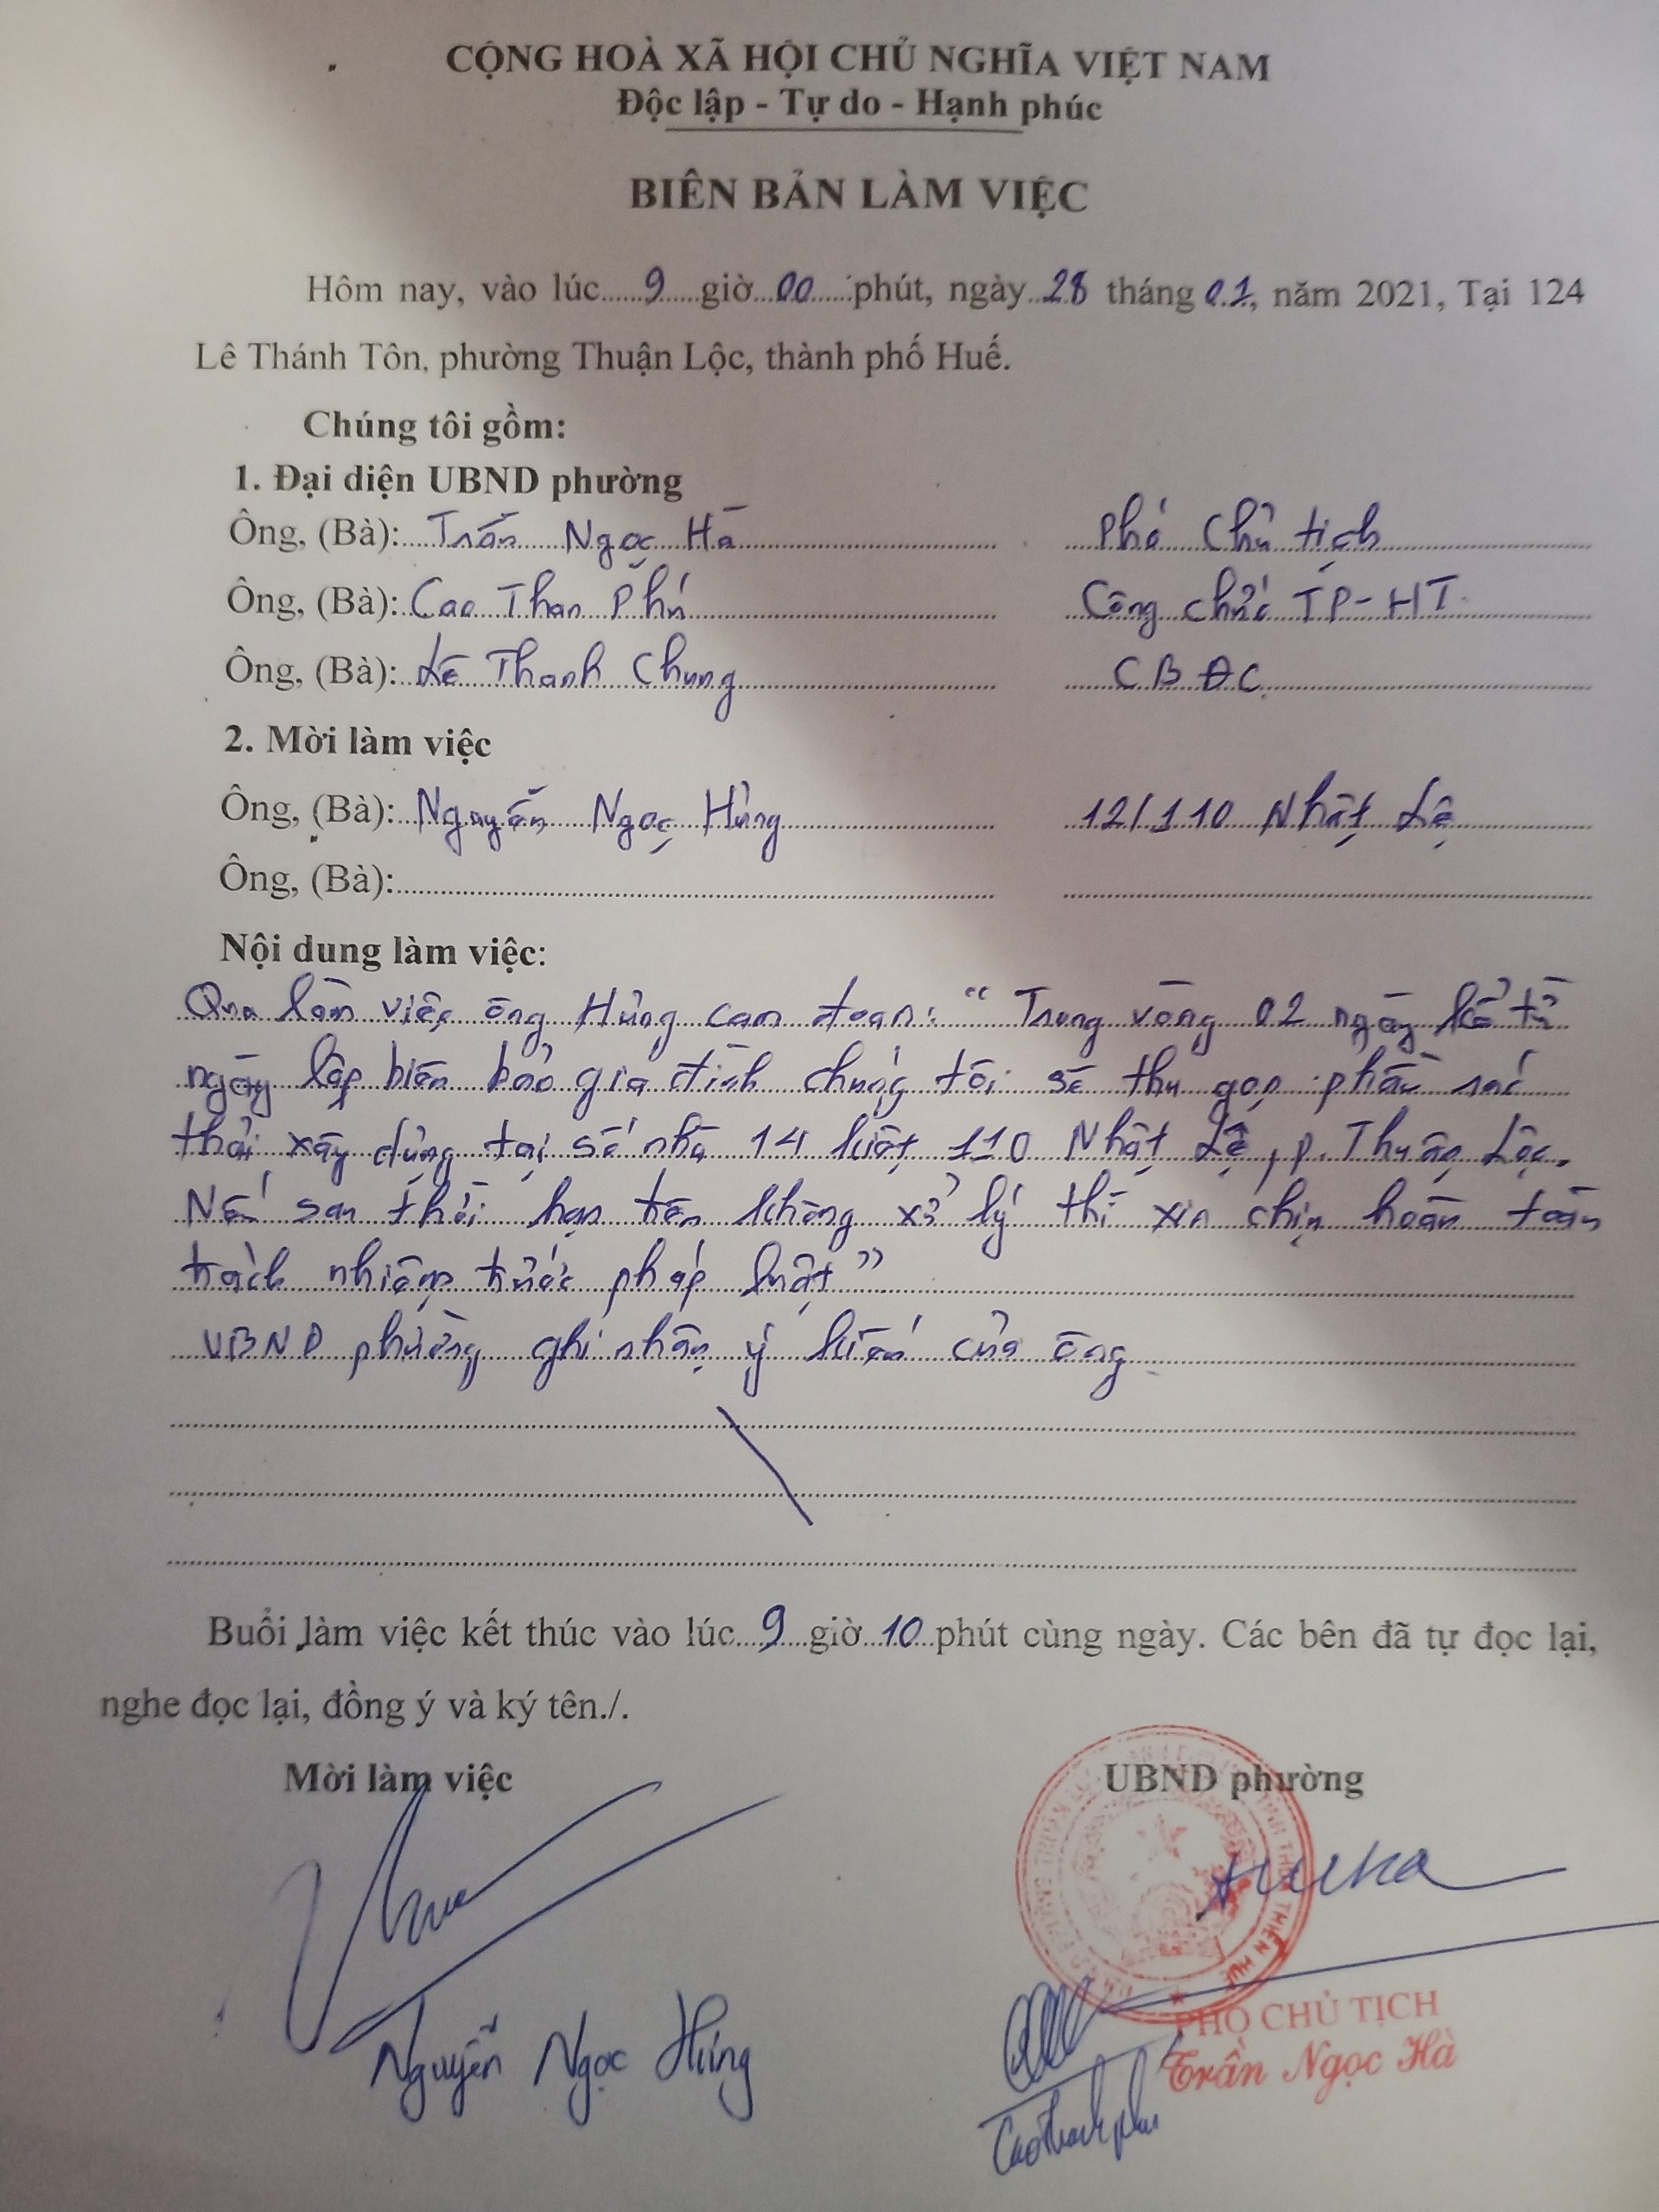 CỘNG HOÀ XÃ HỘI CHỦ NGHĨA VIỆT NAM
Độc lập - Tự do - Hạnh phúc
BIÊN BẢN LÀM VIỆC
Hôm nay, vào lúc 9 giờ 00 phút, ngày 28 tháng 01, năm 2021, Tại 124
Lê Thánh Tôn, phường Thuận Lộc, thành phố Huế.
Chúng tôi gồm:
1. Đại diện UBND phường
Ông, (Bà): Trần Ngọc Hà Phó Chủ tịch
Ông, (Bà): Cao Thanh Phú Công chức TP-HT.
Ông, (Bà): Lê Thanh Chung CBĐC
2. Mời làm việc
Ông, (Bà): Nguyễn Ngọc Hùng 12/110 Nhật Lệ
Ông, (Bà):
Nội dung làm việc:
Qua làm việc ông Hùng cam đoan: "Trong vòng 02 ngày kể từ
ngày lập biên bản gia đình chúng tôi sẽ thu gọn phần rác
thải xây dựng tại số nhà 14 kiệt 110 Nhật Lệ, p. Thuận Lộc.
Nếu sau thời hạn trên không xử lý thì xin chịu hoàn toàn
trách nhiệm trước pháp luật"
UBND phường ghi nhận ý kiến của ông.
Buổi làm việc kết thúc vào lúc 9 giờ 10 phút cùng ngày. Các bên đã tự đọc lại,
nghe đọc lại, đồng ý và ký tên./.
Mời làm việc UBND phường
PHÓ CHỦ TỊCH
Trần Ngọc Hà
Nguyễn Ngọc Hùng
Cao Thanh Phú